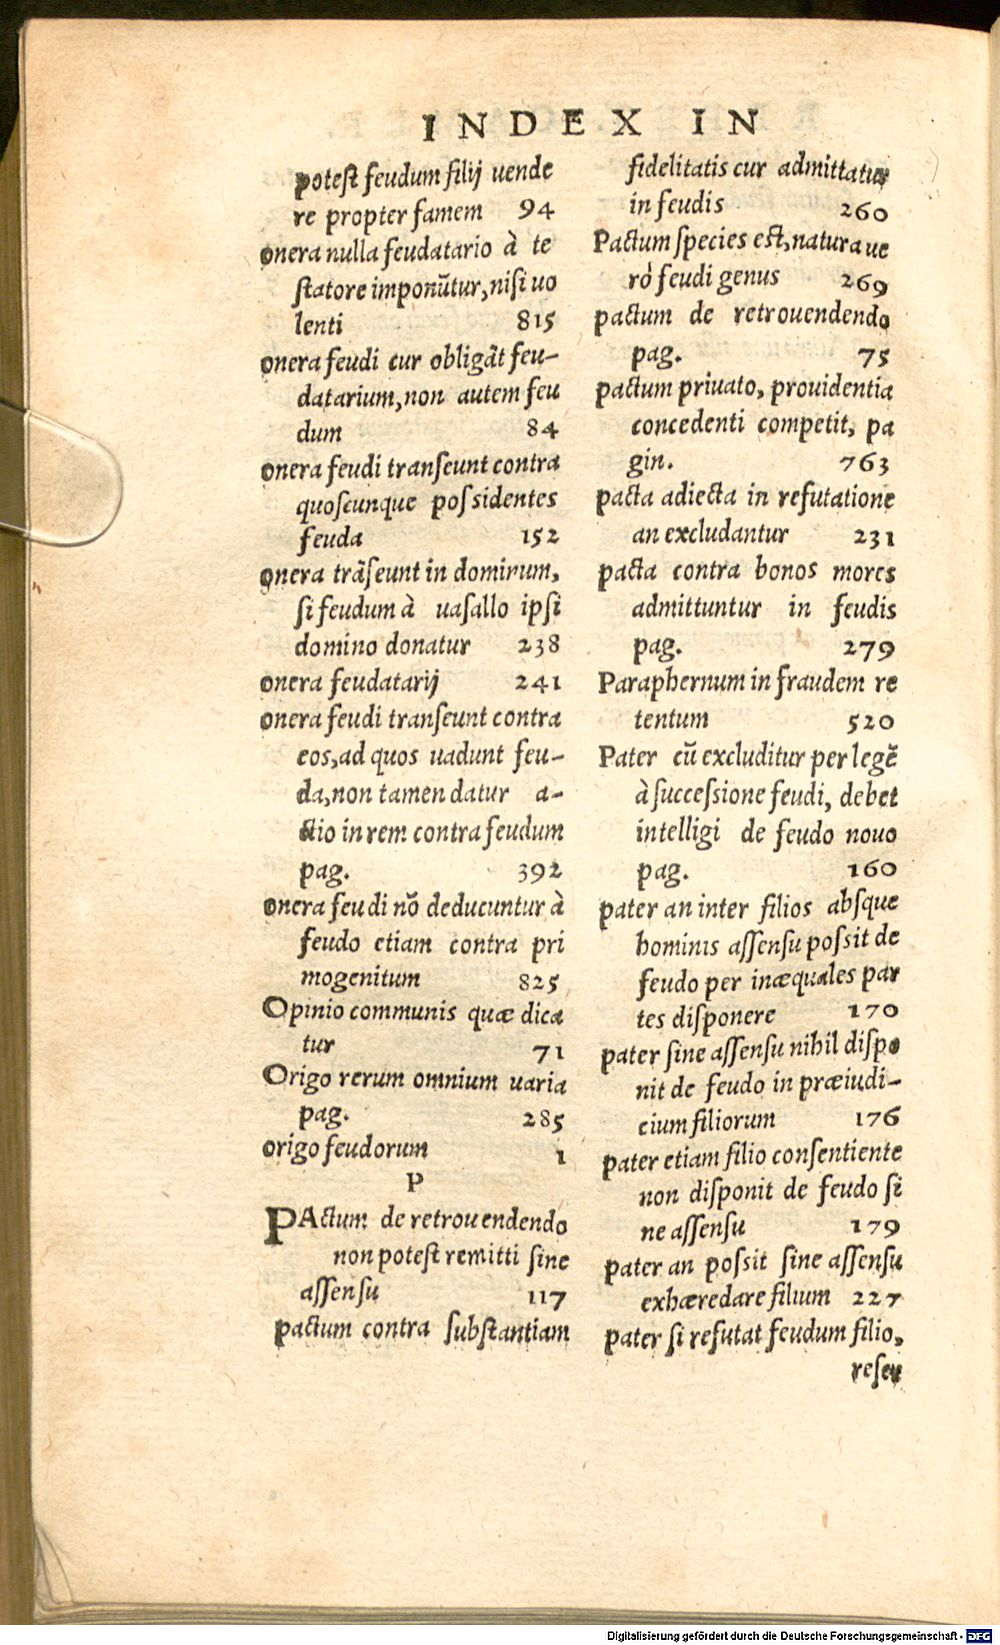 INDEX IN
potest feudum filij uende
re propter famem 94
onera nulla feudatario à te
statore imponũtur, nisi uo
lenti 815
onera feudi cur obligãt feu-
datarium, non autem feu
dum 84
onera feudi transeunt contra
quoscunque possidentes
feuda 152
onera trãseunt in dominum,
si feudum à uasallo ipsi
domino donatur 238
onera feudatarij 241
onera feudi transeunt contra
eos, ad quos uadunt feu-
da, non tamen datur a-
ctio in rem contra feudum
pag. 392
onera feudi nõ deducuntur à
feudo etiam contra pri
mogenitum 825
Opinio communis quæ dica
tur 71
Origo rerum omnium uaria
pag. 285
origo feudorum 1
P
PActum de retrouendendo
non potest remitti sine
assensu 117
pactum contra substantiam
fidelitatis cur admittatur
in feudis 260
Pactum species est, natura ue
rò feudi genus 269
pactum de retrouendendo
pag. 75
pactum priuato, prouidentia
concedenti competit, pa
gin. 763
pacta adiecta in refutatione
an excludantur 231
pacta contra bonos mores
admittuntur in feudis
pag. 279
Paraphernum in fraudem re
tentum 520
Pater cũ excluditur per legẽ
à successione feudi, debet
intelligi de feudo nouo
pag. 160
pater an inter filios absque
hominis assensu possit de
feudo per inæquales par
tes disponere 170
pater sine assensu nihil dispo
nit de feudo in præiudi-
cium filiorum 176
pater etiam filio consentiente
non disponit de feudo si
ne assensu 179
pater an possit sine assensu
exhæredare filium 227
pater si refutat feudum filio,
reser
Digitalisierung gefördert durch die Deutsche Forschungsgemeinschaft - DFG